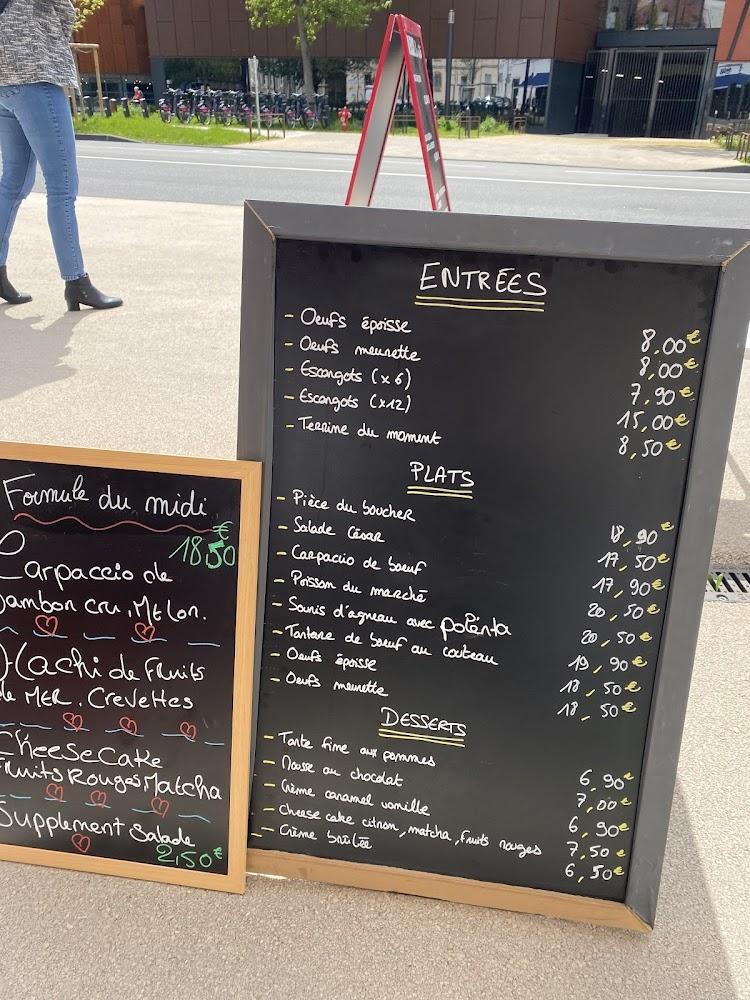 Formule du midi
18,50€
Carpaccio de
Jambon cru, Melon.
Hachi de Fruits
de MER. Crevettes
CheeseCake
Fruits Rouges Matcha
Supplement Salade
2,50€
ENTREES
- Oeufs époisse 8,00€
- Oeufs meurette 8,00€
- Escargots (x6) 7,90€
- Escargots (x12) 15,00€
- Terrine du moment 8,50€
PLATS
- Pièce du boucher 18,90€
- Salade César 17,50€
- Carpaccio de bœuf 17,90€
- Poisson du marché 20,50€
- Souris d'agneau avec polenta 20,50€
- Tartare de bœuf au couteau 19,90€
- Oeufs époisse 18,50€
- Oeufs meurette 18,50€
DESSERTS
- Tarte fine aux pommes 6,90€
- Mousse au chocolat 7,00€
- Crème caramel vanille 6,90€
- Cheese cake citron, matcha, fruits rouges 7,50€
- Crème brûlée 6,50€